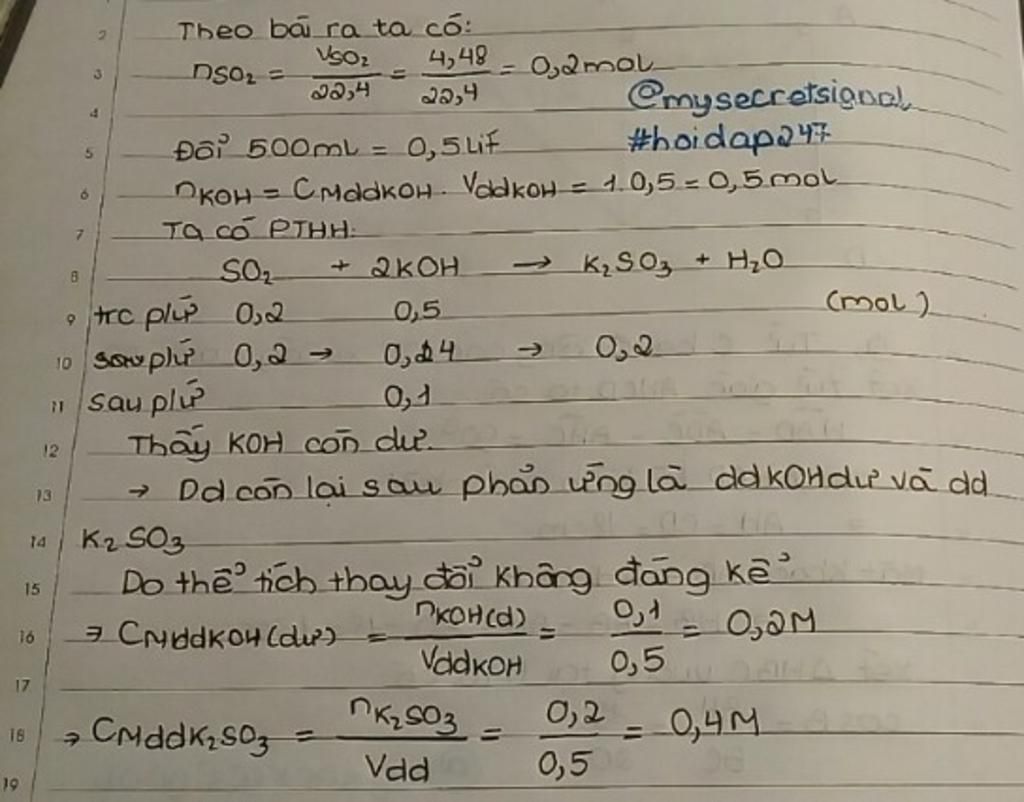 2 Theo bài ra ta có:
3 nSO₂ = VSO₂/22,4 = 4,48/22,4 = 0,2mol
@mysecretsignal
4
#hoidap247
5 Đổi 500mL = 0,5Lít
6 nKOH = CMddKOH. VddKOH = 1.0,5 = 0,5 mol
7 Ta có PTHH:
8 SO₂ + 2KOH → K₂SO₃ + H₂O
9 trc plư 0,2 0,5 (mol)
10 plư 0,2 → 0,4 → 0,2
11 sau plư 0,1
12 Thấy KOH còn dư.
13 → Dd còn lại sau phản ứng là ddKOHdư và dd
14 K₂SO₃
15 Do thể tích thay đổi không đáng kể
16 ⇒ CMddKOH(dư) = nKOH(d)/VddKOH = 0,1/0,5 = 0,2M
17
18 ⇒ CMddK₂SO₃ = nK₂SO₃/Vdd = 0,2/0,5 = 0,4M
19